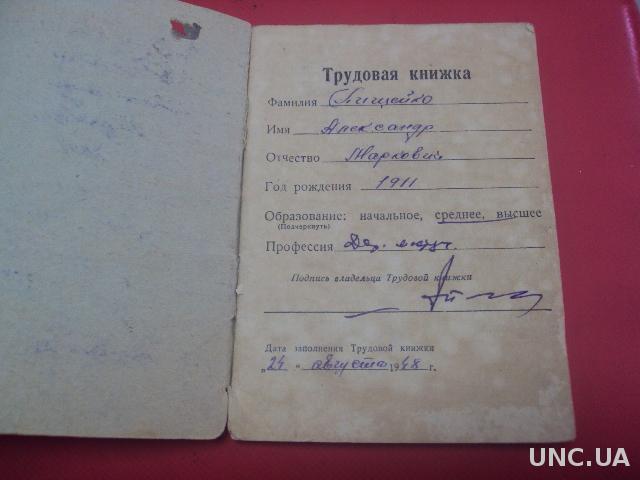 Трудовая книжка
Фамилия
Имя Александр
Отчество Маркович
Год рождения 1911
Образование: начальное, среднее, высшее
(Подчеркнуть)
Профессия
Подпись владельца Трудовой книжки
Дата заполнения Трудовой книжки
„24 " августа 1948 г.
UNC.UA